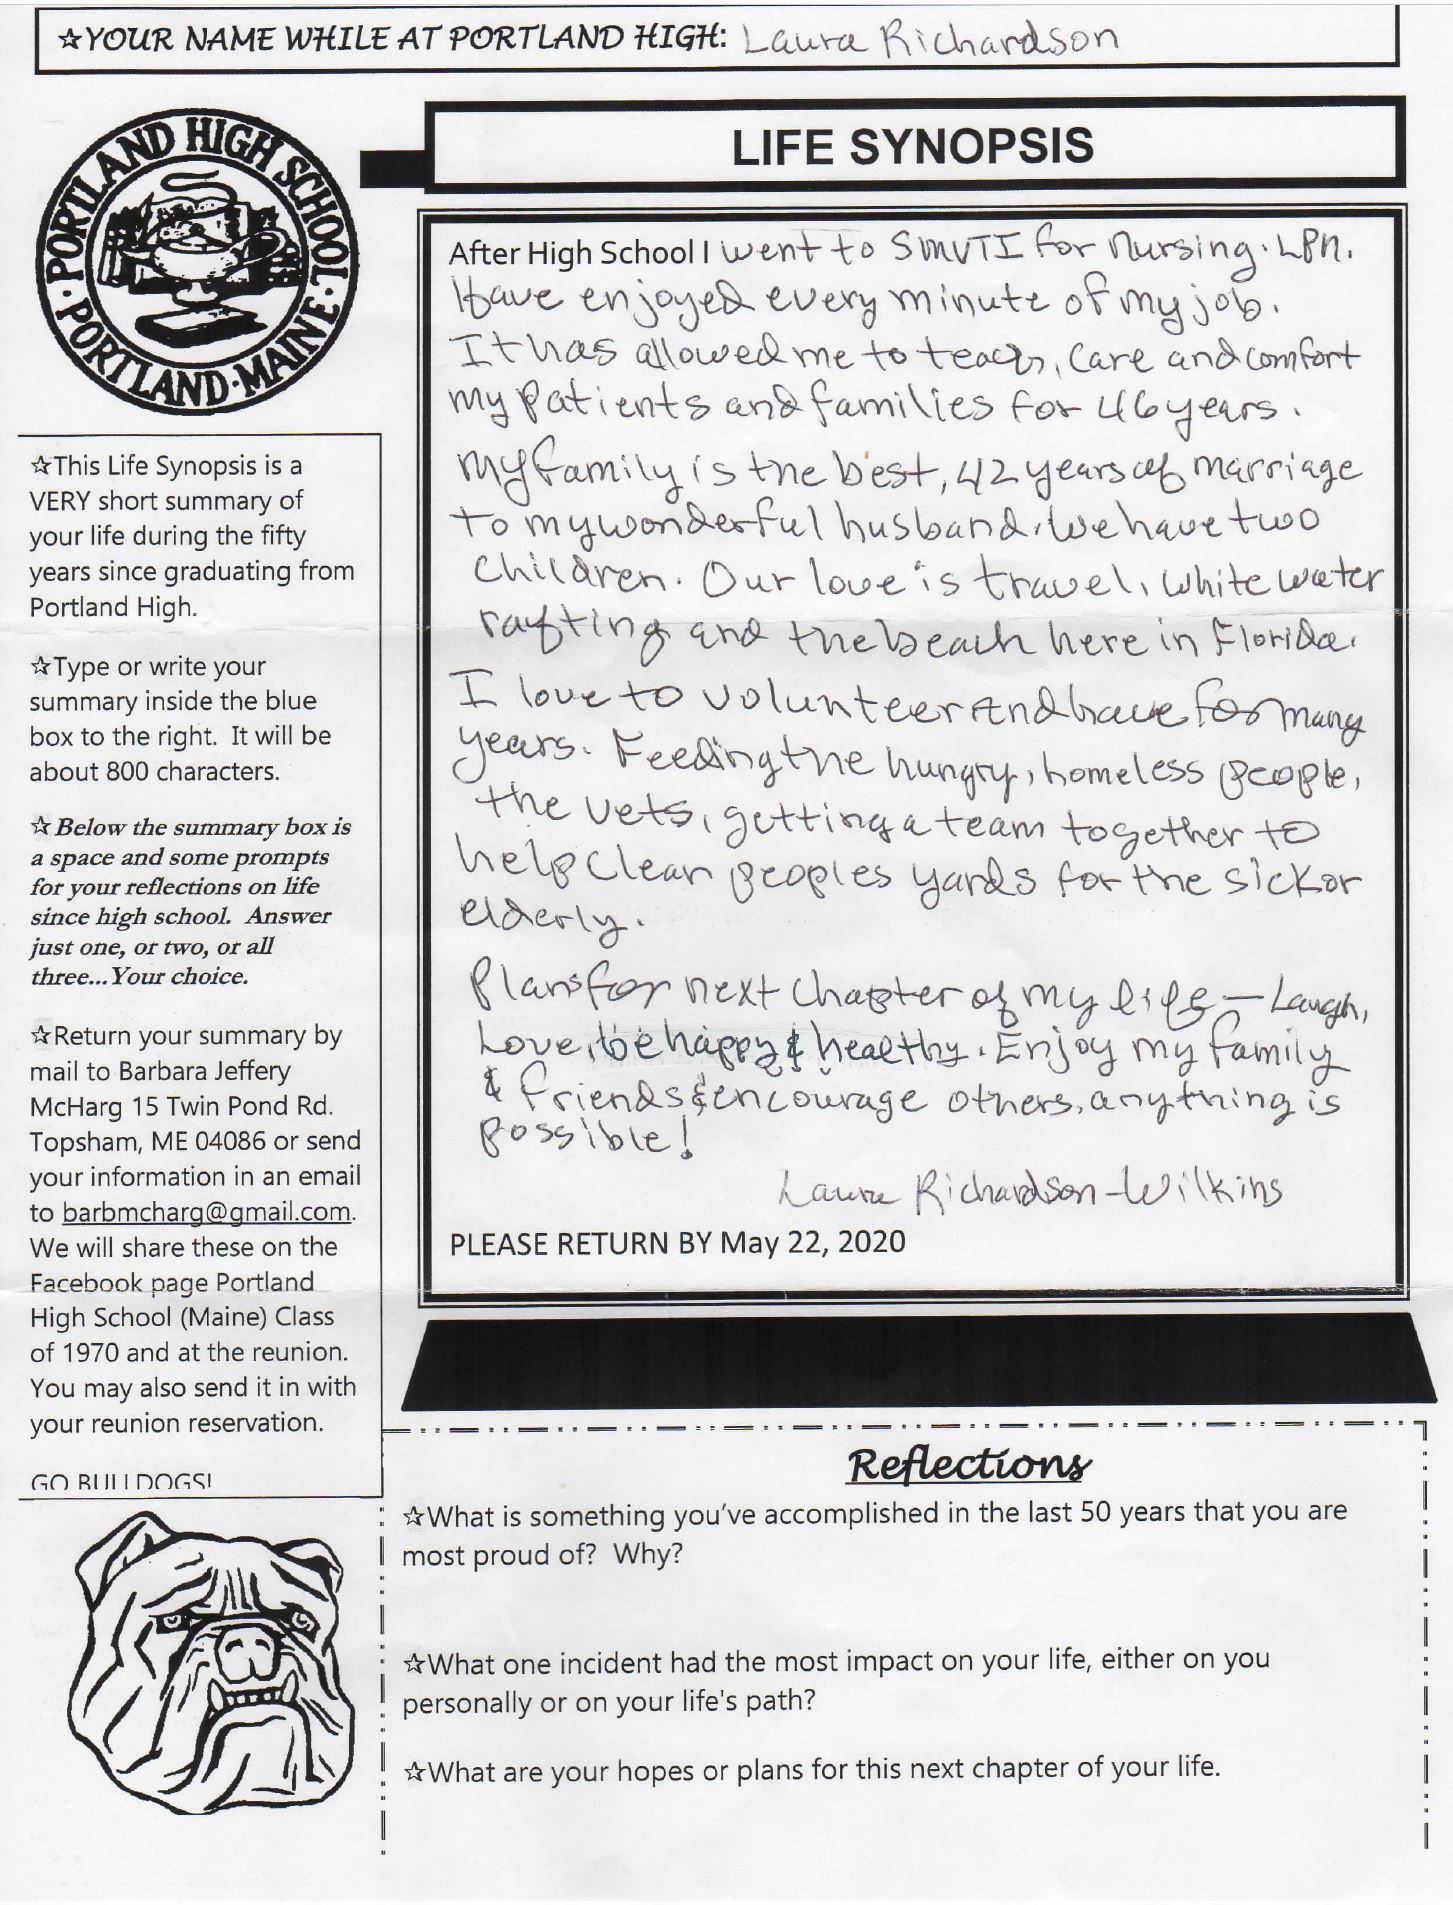 ☆YOUR NAME WHILE AT PORTLAND HIGH: Laura Richardson
PORTLAND HIGH SCHOOL · PORTLAND · MAINE ·
LIFE SYNOPSIS
After High School I went to SMVTI for nursing. LPN.
Have enjoyed every minute of my job.
It has allowed me to teach, care and comfort
my patients and families for 46 years.
My family is the best, 42 years of marriage
to my wonderful husband. We have two
children. Our love is travel, white water
rafting and the beach here in Florida.
I love to volunteer and have for many
years. Feeding the hungry, homeless people,
the vets, getting a team together to
help clean peoples yards for the sick or
elderly.
Plans for next chapter of my life - Laugh,
Love, be happy & healthy. Enjoy my family
& friends & encourage others, anything is
possible!
Laura Richardson-Wilkins
PLEASE RETURN BY May 22, 2020
☆This Life Synopsis is a
VERY short summary of
your life during the fifty
years since graduating from
Portland High.
☆Type or write your
summary inside the blue
box to the right. It will be
about 800 characters.
☆Below the summary box is
a space and some prompts
for your reflections on life
since high school. Answer
just one, or two, or all
three...Your choice.
☆Return your summary by
mail to Barbara Jeffery
McHarg 15 Twin Pond Rd.
Topsham, ME 04086 or send
your information in an email
to barbmcharg@gmail.com.
We will share these on the
Facebook page Portland
High School (Maine) Class
of 1970 and at the reunion.
You may also send it in with
your reunion reservation.
GO BULLDOGS!
Reflections
☆What is something you've accomplished in the last 50 years that you are
most proud of? Why?
☆What one incident had the most impact on your life, either on you
personally or on your life's path?
☆What are your hopes or plans for this next chapter of your life.